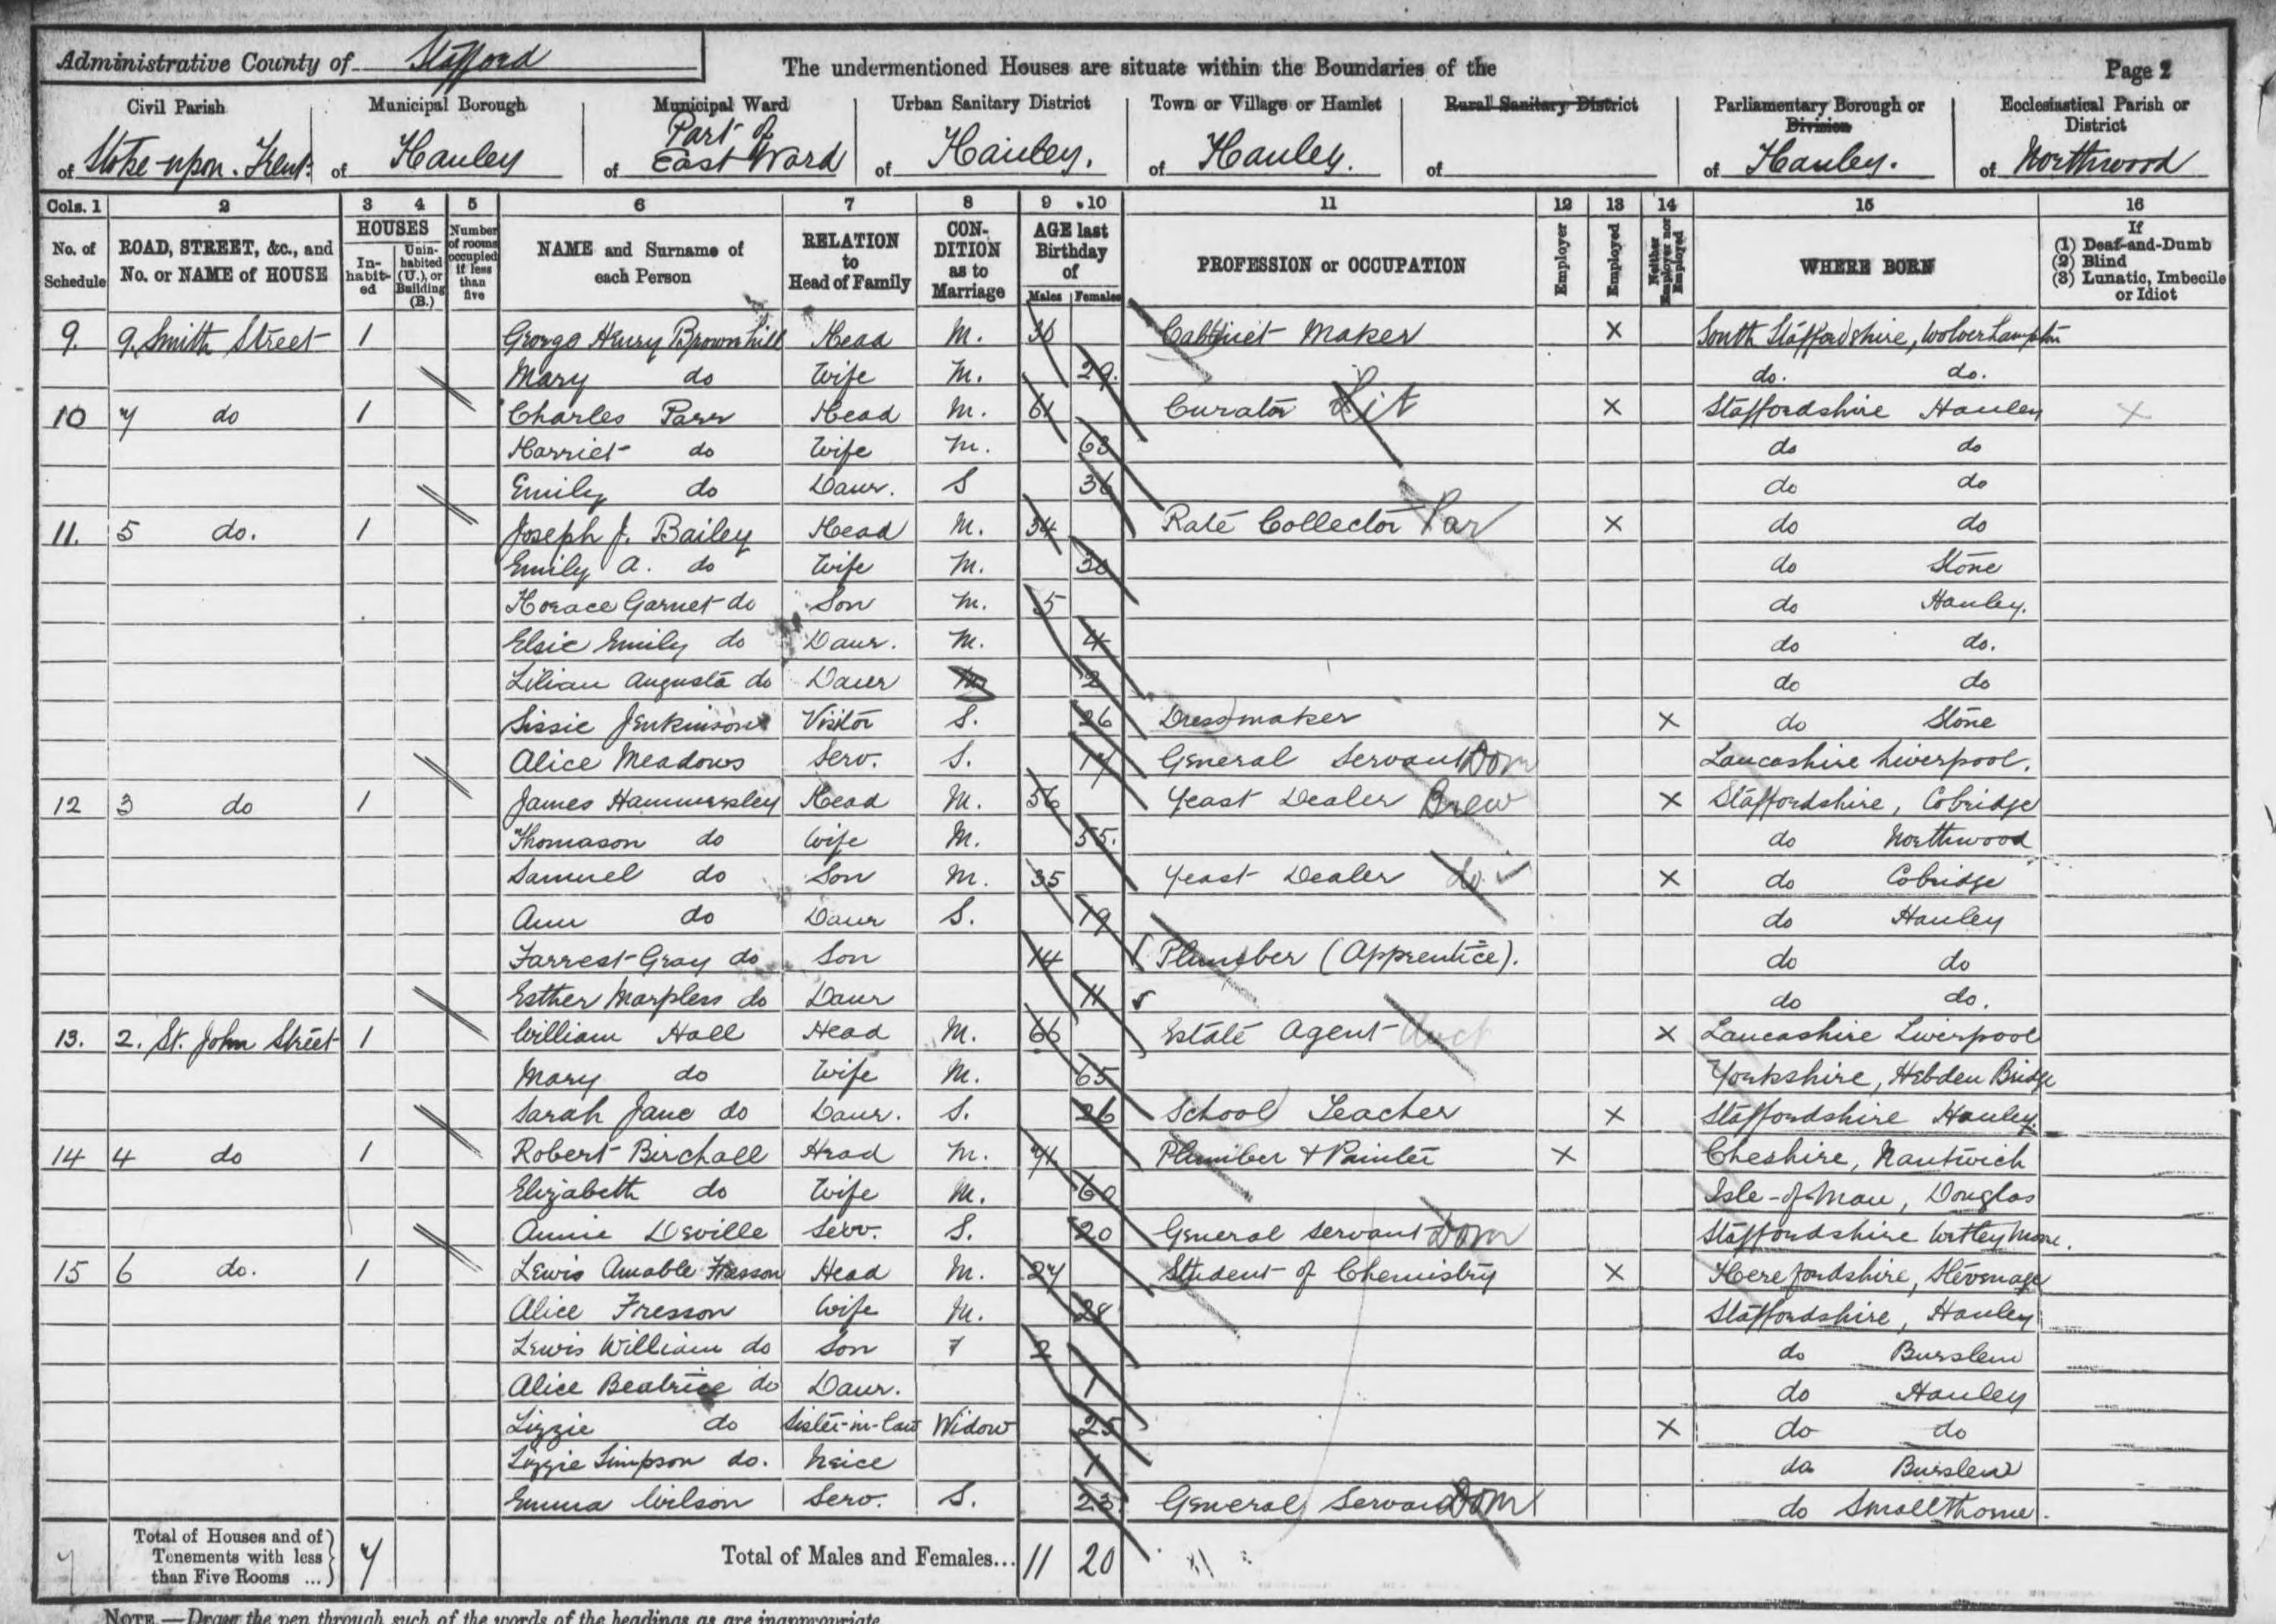 Administrative County of Stafford
The undermentioned Houses are situate within the Boundaries of the
Page 2
Civil Parish of Stoke-upon-Trent
Municipal Borough of Hanley
Municipal Ward of Part of East Ward
Urban Sanitary District of Hanley.
Town or Village or Hamlet of Hanley.
Rural Sanitary District of
Parliamentary Borough or Division of Hanley.
Ecclesiastical Parish or District of Northwood
Cols. 1 2 3 4 5 6 7 8 9 10 11 12 13 14 15 16
No. of Schedule
ROAD, STREET, &c., and No. or NAME of HOUSE
HOUSES
Inhabited
Uninhabited (U.), or Building (B.)
Number of rooms occupied if less than five
NAME and Surname of each Person
RELATION to Head of Family
CONDITION as to Marriage
AGE last Birthday of
Males Females
PROFESSION or OCCUPATION
Employer
Employed
Neither Employer nor Employed
WHERE BORN
If (1) Deaf-and-Dumb (2) Blind (3) Lunatic, Imbecile or Idiot
9. 9. Smith Street 1 George Henry Brownhill Head M. 36 Cabinet Maker X South Staffordshire, Wolverhampton
Mary do Wife M. 29. do. do.
10 7 do 1 Charles Parr Head M. 61 Curator Lit X Staffordshire Hanley X
Harriet do Wife M. 63 do do
Emily do Daur. S 36 do do
11. 5 do. 1 Joseph J. Bailey Head M. 34 Rate Collector Par X do do
Emily A. do Wife M. 30 do Stone
Horace Garnet do Son M. 5 do Hanley.
Elsie Emily do Daur. M. 4 do do.
Lilian Augusta do Daur M 2 do do
Sissie Jenkinson Visitor S. 26 Dressmaker X do Stone
Alice Meadows Serv. S. 17 General Servant Dom Lancashire Liverpool.
12 3 do 1 James Hammersley Head M. 56 Yeast Dealer Brew X Staffordshire, Cobridge
Thomason do Wife M. 55. do Northwood
Samuel do Son M. 35 Yeast Dealer do X do Cobridge
Ann do Daur S. 19 do Hanley
Farrest Gray do Son 14 Plumber (Apprentice). do do
Esther Marpless do Daur 11 do do.
13. 2. St. John Street 1 William Hall Head M. 66 Estate Agent Auct X Lancashire Liverpool
Mary do Wife M. 65 Yorkshire, Hebden Bridge
Sarah Jane do Daur. S. 26 School Teacher X Staffordshire Hanley.
14 4 do 1 Robert Birchall Head M. 71 Plumber & Painter X Cheshire, Nantwich
Elizabeth do Wife M. 60 Isle-of-Man, Douglas
Annie Deville Serv. S. 20 General Servant Dom Staffordshire Wetley Moor.
15 6 do. 1 Lewis Amable Fresson Head M. 27 Student of Chemistry X Herefordshire, Stevenage
Alice Fresson Wife M. 28 Staffordshire, Hanley
Lewis William do Son 2 do Burslem
Alice Beatrice do Daur. 1 do Hanley
Lizzie do Sister-in-law Widow 25 X do do
Lizzie Simpson do. Neice 1 do Burslem
Emma Wilson Serv. S. 23 General Servant Dom do Smallthorne.
7 Total of Houses and of Tenements with less than Five Rooms ... 7 Total of Males and Females... 11 20
NOTE.—Draw the pen through such of the words of the headings as are inappropriate